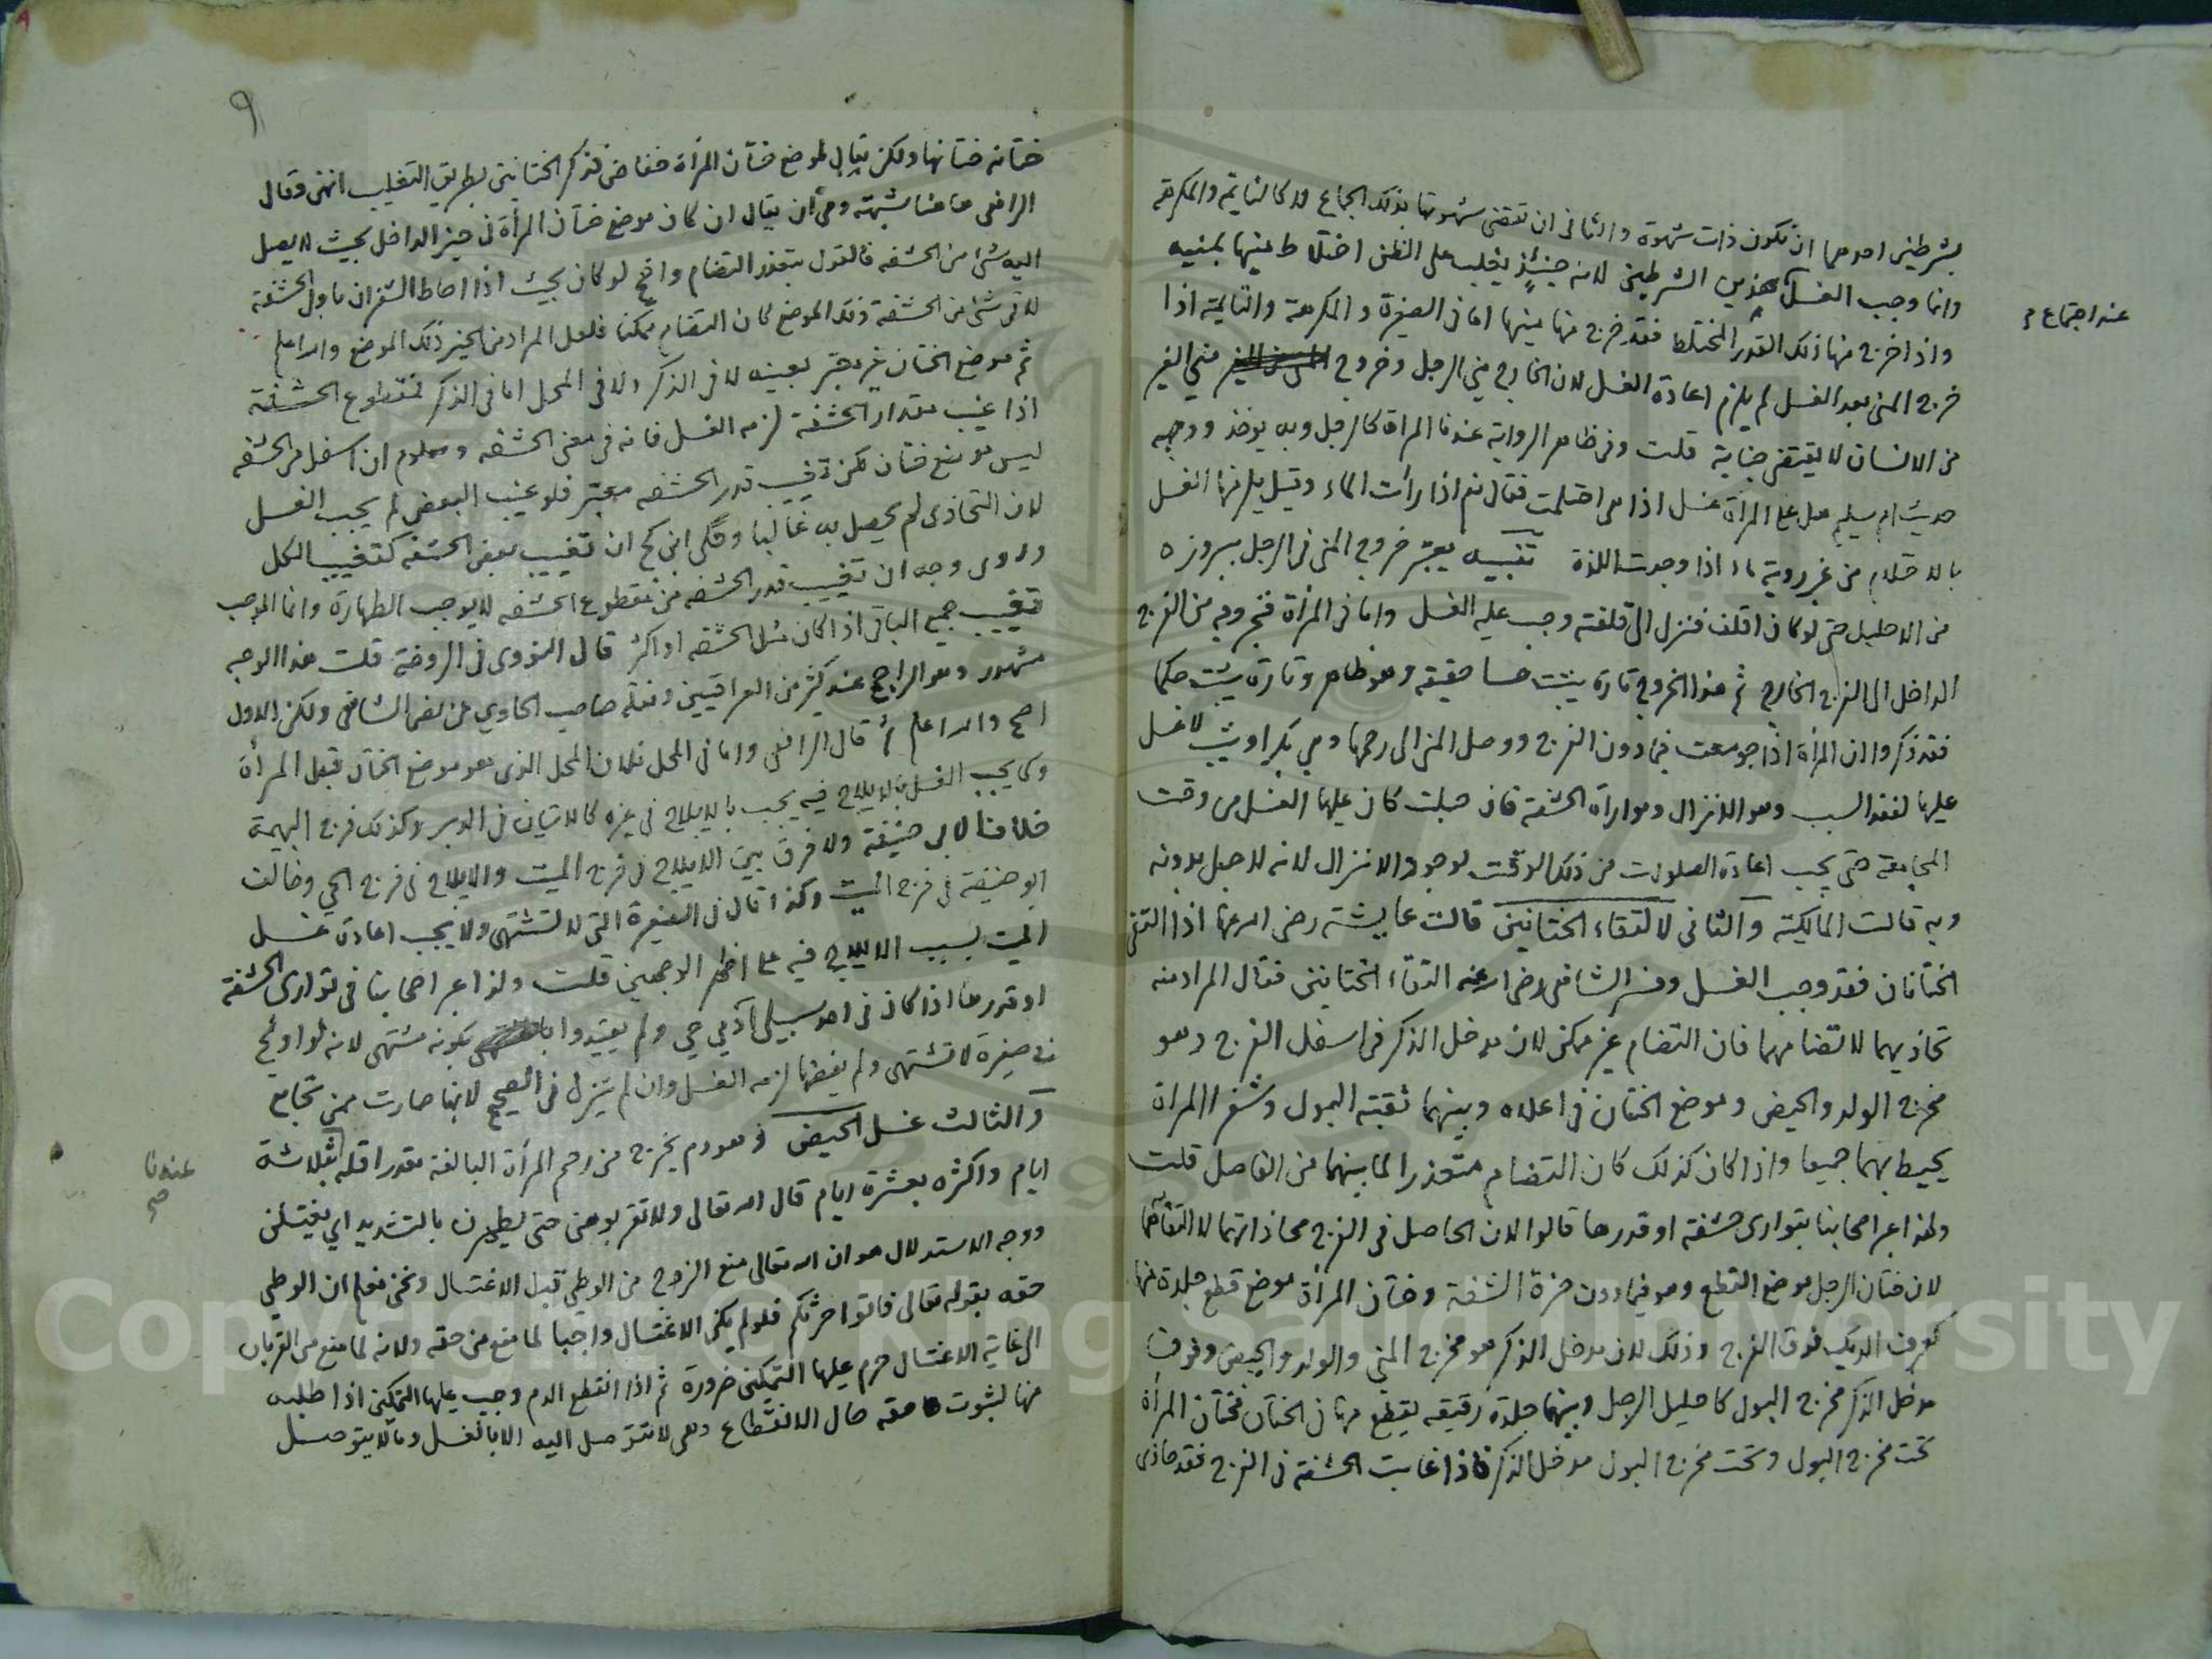 بشرطين احدهما ان تكون ذات شهوة والثاني ان تقضي شهوتها بذلك الجماع لا كالنايمة والمكرهة
وانما وجب الغسل هذين الشرطين لانه حينئذ يغلب على الظن اختلاط منيها بمنيه
عند اجتماع
واذا خرج منها ذلك القدر المختلط فقد خرج منها منيها اما في الصغيرة والمكرهة والنايمة اذا
خرج المني بعد الغسل لم يلزم اعادة الغسل لان الخارج مني الرجل وخروج مني الغير
من الانسان لا يقتضي جنابة قلت وفي ظاهر الرواية عندنا المراة كالرجل وبه يوخذ ووجهه
حديث ام سليم هل على المرأة غسل اذا هي احتلمت فقال نعم اذا رأت الماء وقيل يلزمها الغسل
بالاحتلام من غير روية ماء اذا وجدت اللذة تنبيه يعتبر خروج المني في الرجل ببروزه
من الاحليل حتى لو كان اقلف فنزل الى قلفته وجب عليه الغسل واما في المرأة فخروجه من الفرج
الداخل الى الفرج الخارج ثم هذا الخروج تارة يثبت حسا حقيقة وهو ظاهر وتارة يثبت حكما
فقد ذكروا ان المرأة اذا جومعت فيما دون الفرج ووصل المني الى رحمها وهي بكر او ثيب لا غسل
عليها لفقد السبب وهو الانزال ومواراة الحشفة فان حبلت كان عليها الغسل من وقت
المجامعة حتى يجب اعادة الصلوات من ذلك الوقت لوجود الانزال لانه لا حبل بدونه
وبه قالت المالكية والثاني لالتقاء الختانين قالت عايشة رضى الله عنها اذا التقى
الختانان فقد وجب الغسل وفسر الشافعي رضى الله عنه التقاء الختانين فقال المراد منه
تحاذيهما لا تضامهما فان التضام غير ممكن لان مدخل الذكر في اسفل الفرج وهو
مخرج الولد والحيض وموضع الختان في اعلاه وبينهما ثقبة البول وشفرا المراة
يحيط بهما جميعا واذا كان كذلك كان التضام متعذرا لما بينهما من الفاصل قلت
ولهذا عبر اصحابنا بتوارى حشفة او قدرها قالوا لان الحاصل في الفرج محاذاتهما لا التقائهما
لان ختان الرجل موضع القطع وهو فيما دون حزة الحشفة وختان المرأة موضع قطع جلدة منها
كعرف الديك فوق الفرج وذلك لان مدخل الذكر هو مخرج المني والولد والحيض وفوق
مدخل الذكر مخرج البول كاحليل الرجل وبينهما جلدة رقيقة يقطع منها في الختان فختان المرأة
تحت مخرج البول وتحت مخرج البول مدخل الذكر فاذا غابت الحشفة في الفرج فقد حاذى
٩
ختانه ختانها ولكن يقال لموضع ختان المرأة خفاض فذكر الختانين بطريق التغليب انتهى وقال
الرافعي هاهنا شبهة وهى ان يقال ان كان موضع ختان المرأة في حيز الداخل بحيث لا يصل
اليه شئ من الحشفه فالقول بتعذر التضام واضح لو كان بحيث اذا احاط الشفران باول الحشفة
لاقى شئ من الحشفة ذلك الموضع كان التضام ممكنا فلعل المراد من الحيز ذلك الموضع والله اعلم
ثم موضع الختان غير معتبر بعينه لا في الذكر ولا في المحل اما في الذكر فمقطوع الحشفة
اذا غيب مقدار الحشفة لزمه الغسل فانه في معنى الحشفه ومعلوم ان اسفل من الحشفه
ليس موضع ختان لكن تغييب قدر الحشفه معتبر فلو غيب البعض لم يجب الغسل
لان التحاذى لم يحصل به غالبا وحكى ابن كج ان تغييب بعض الحشفه كتغييب الكل
وروى وجه ان تغييب قدر الحشفه من مقطوع الحشفه لا يوجب الطهارة وانما الموجب
تغييب جميع الباقي اذا كان مثل الحشفه او اكثر قال النووى في الروضة قلت هذا الوجه
مشهور وهو الراجح عند كثير من العراقيين ونقله صاحب الحاوي عن نص الشافعى ولكن الاول
اصح والله اعلم ثم قال الرافعي واما في المحل فلان المحل الذى هو موضع الختان قبل المرأة
وكما يجب الغسل بالايلاج فيه يجب بالايلاج في غيره كالاتيان في الدبر وكذلك فرج البهيمة
خلافا لابى حنيفة ولا فرق بين الايلاج في فرج الميت والايلاج في فرج الحي وخالف
ابو حنيفة في فرج الميت وكذا قال في الصغيرة التى لا تشتهى ولا يجب اعادة غسل
الميت بسبب الايلاج فيه على اظهر الوجهين قلت ولذا عبر اصحابنا في توارى الحشفة
او قدرها اذا كان في احد سبيلي آدمي حي ولم يقيدوا بكونه مشتهى لانه لو اولج
في صغيرة لا تشتهى ولم يفضها لزمه الغسل وان لم ينزل في الصحيح لانها صارت ممن تجامع
والثالث غسل الحيض وهو دم يخرج من رحم المرأة البالغة مقدر اقله بثلاثة
عندنا
صح
ايام واكثره بعشرة ايام قال الله تعالى ولا تقربوهن حتى يطهرن بالتشديد اي يغتسلن
ووجه الاستدلال هو ان الله تعالى منع الزوج من الوطي قبل الاغتسال ونحن نعلم ان الوطي
حقه بقوله تعالى فاتوا حرثكم فلو لم يكن الاغتسال واجبا لما منع من حقه ولانه لما منع من القربان
الى غاية الاغتسال حرم عليها التمكين ضرورة ثم اذا انقطع الدم وجب عليها التمكين اذا طلبه
منها لثبوت حقه حال الانقطاع وهى لا تتوصل اليه الا بالغسل وما لا يتوصل